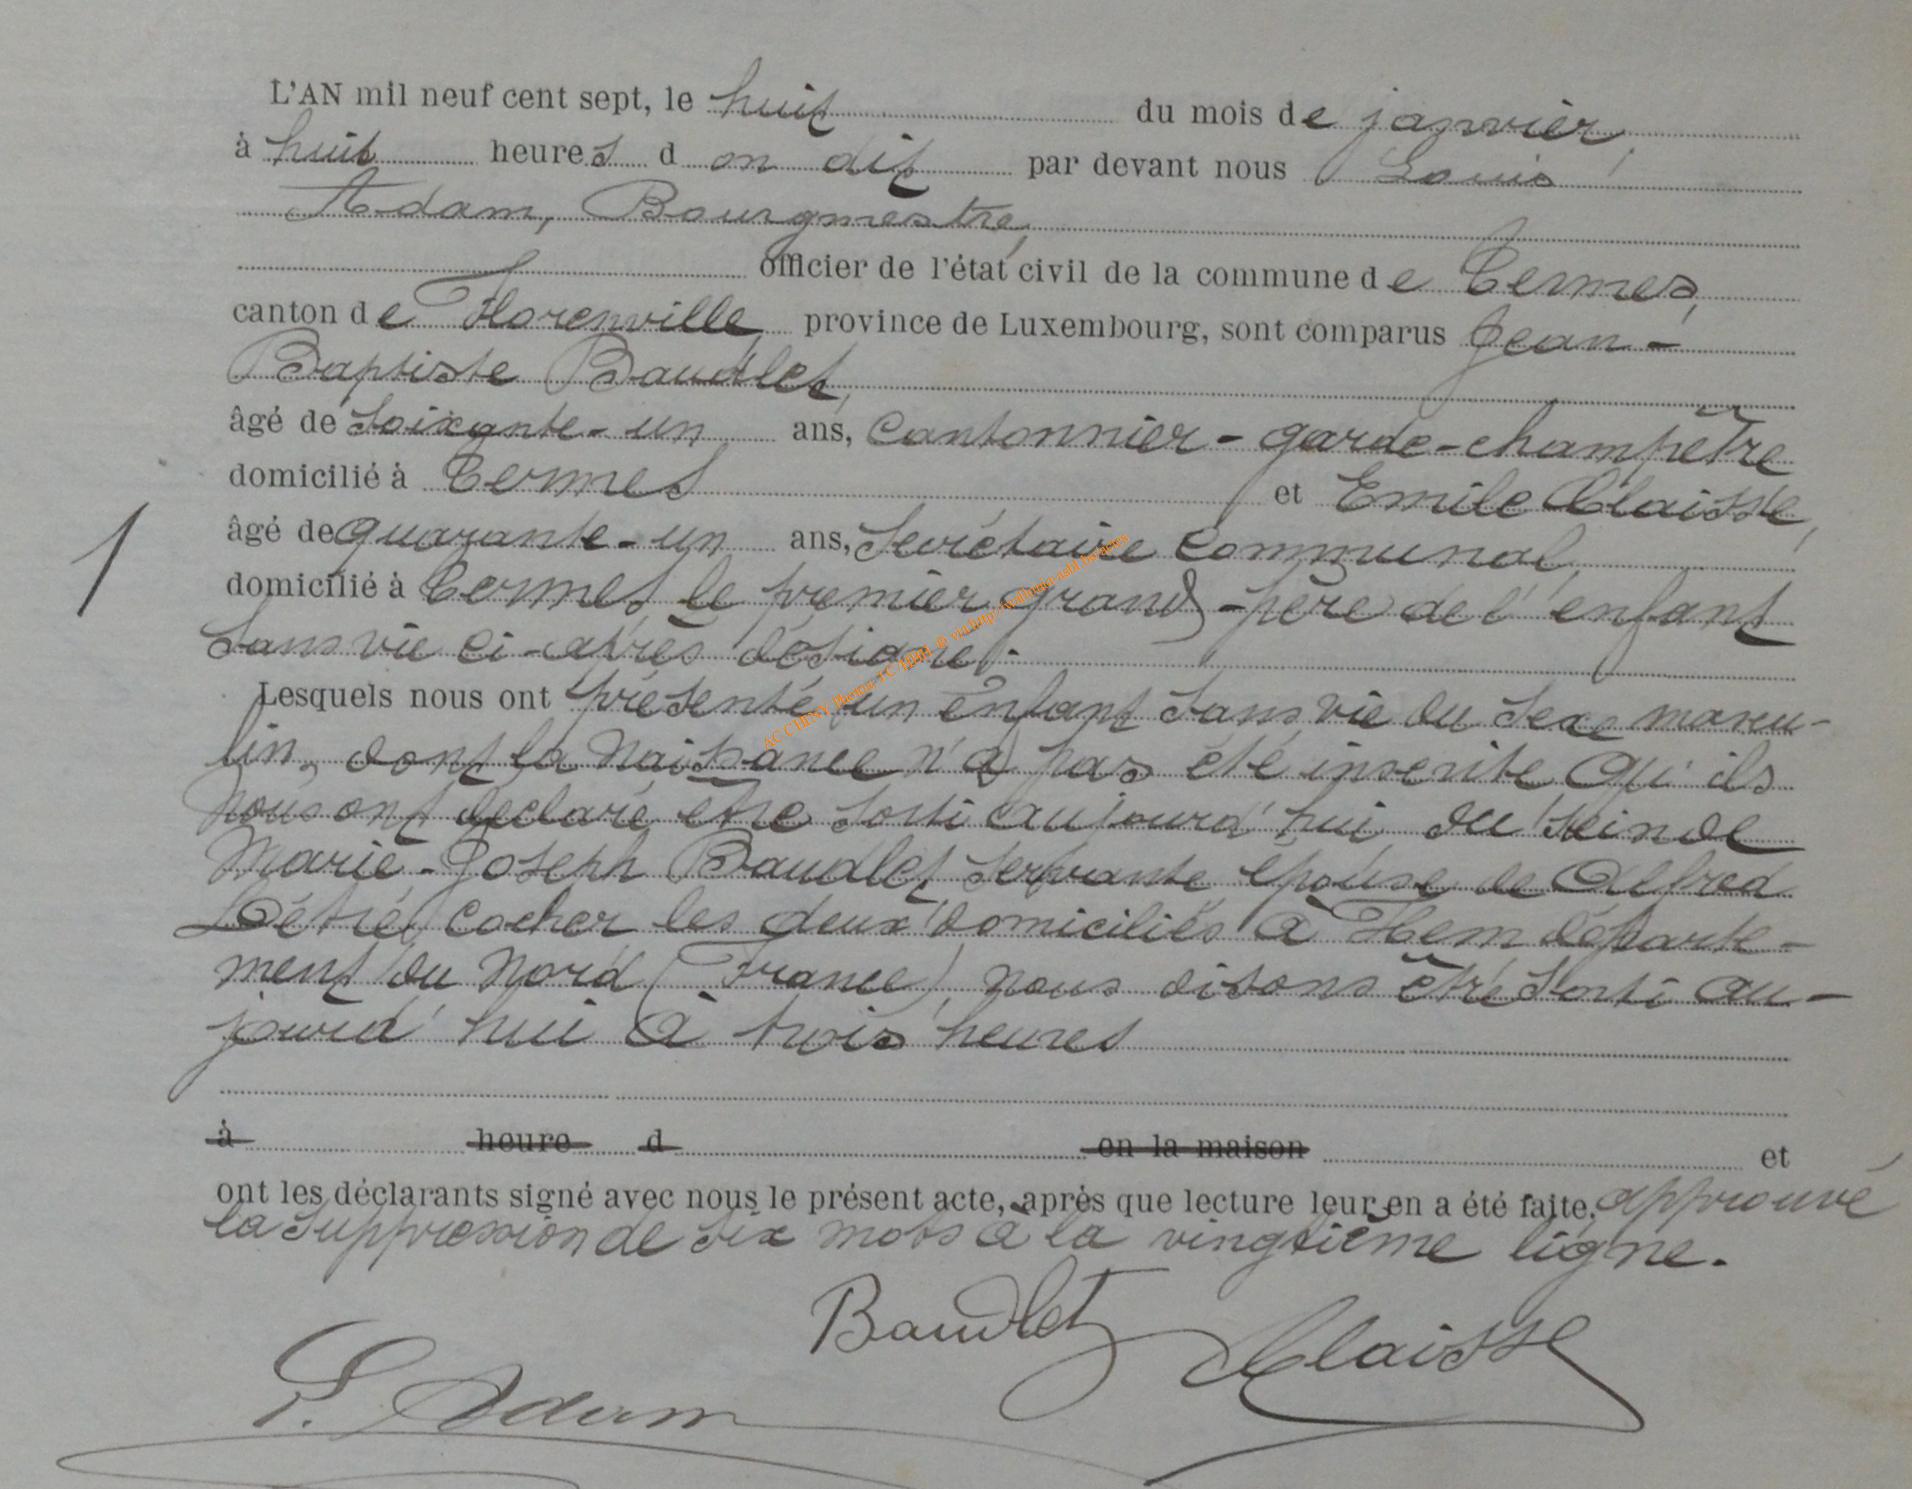 L'AN mil neuf cent sept, le huit du mois de janvier,
à huit heures d on dit par devant nous Louis
Adam, Bourgmestre,
officier de l'état civil de la commune de Termes,
canton de Florenville, province de Luxembourg, sont comparus Jean-
Baptiste Baudlet,
âgé de soixante-un ans, cantonnier-garde-champêtre
domicilié à Termes et Emile Claisse,
âgé de quarante-un ans, secrétaire communal,
domicilié à Termes, le premier grand-père de l'enfant
sans vie ci-après désigné.
Lesquels nous ont présenté un enfant sans vie du sexe mascu-
lin, dont la naissance n'a pas été inscrite qu'ils
nous ont déclaré être sorti aujourd'hui du sein de
Marie-Joseph Baudlet, servante, épouse de Alfred
cocher les deux domiciliés à Hem, départe-
ment du Nord (France), nous disons être sorti au-
jourd'hui à trois heures
à heure d en la maison et
ont les déclarants signé avec nous le présent acte, après que lecture leur en a été faite. approuvé
la suppression de six mots à la vingtième ligne.
Baudlet Claisse
L. Adam